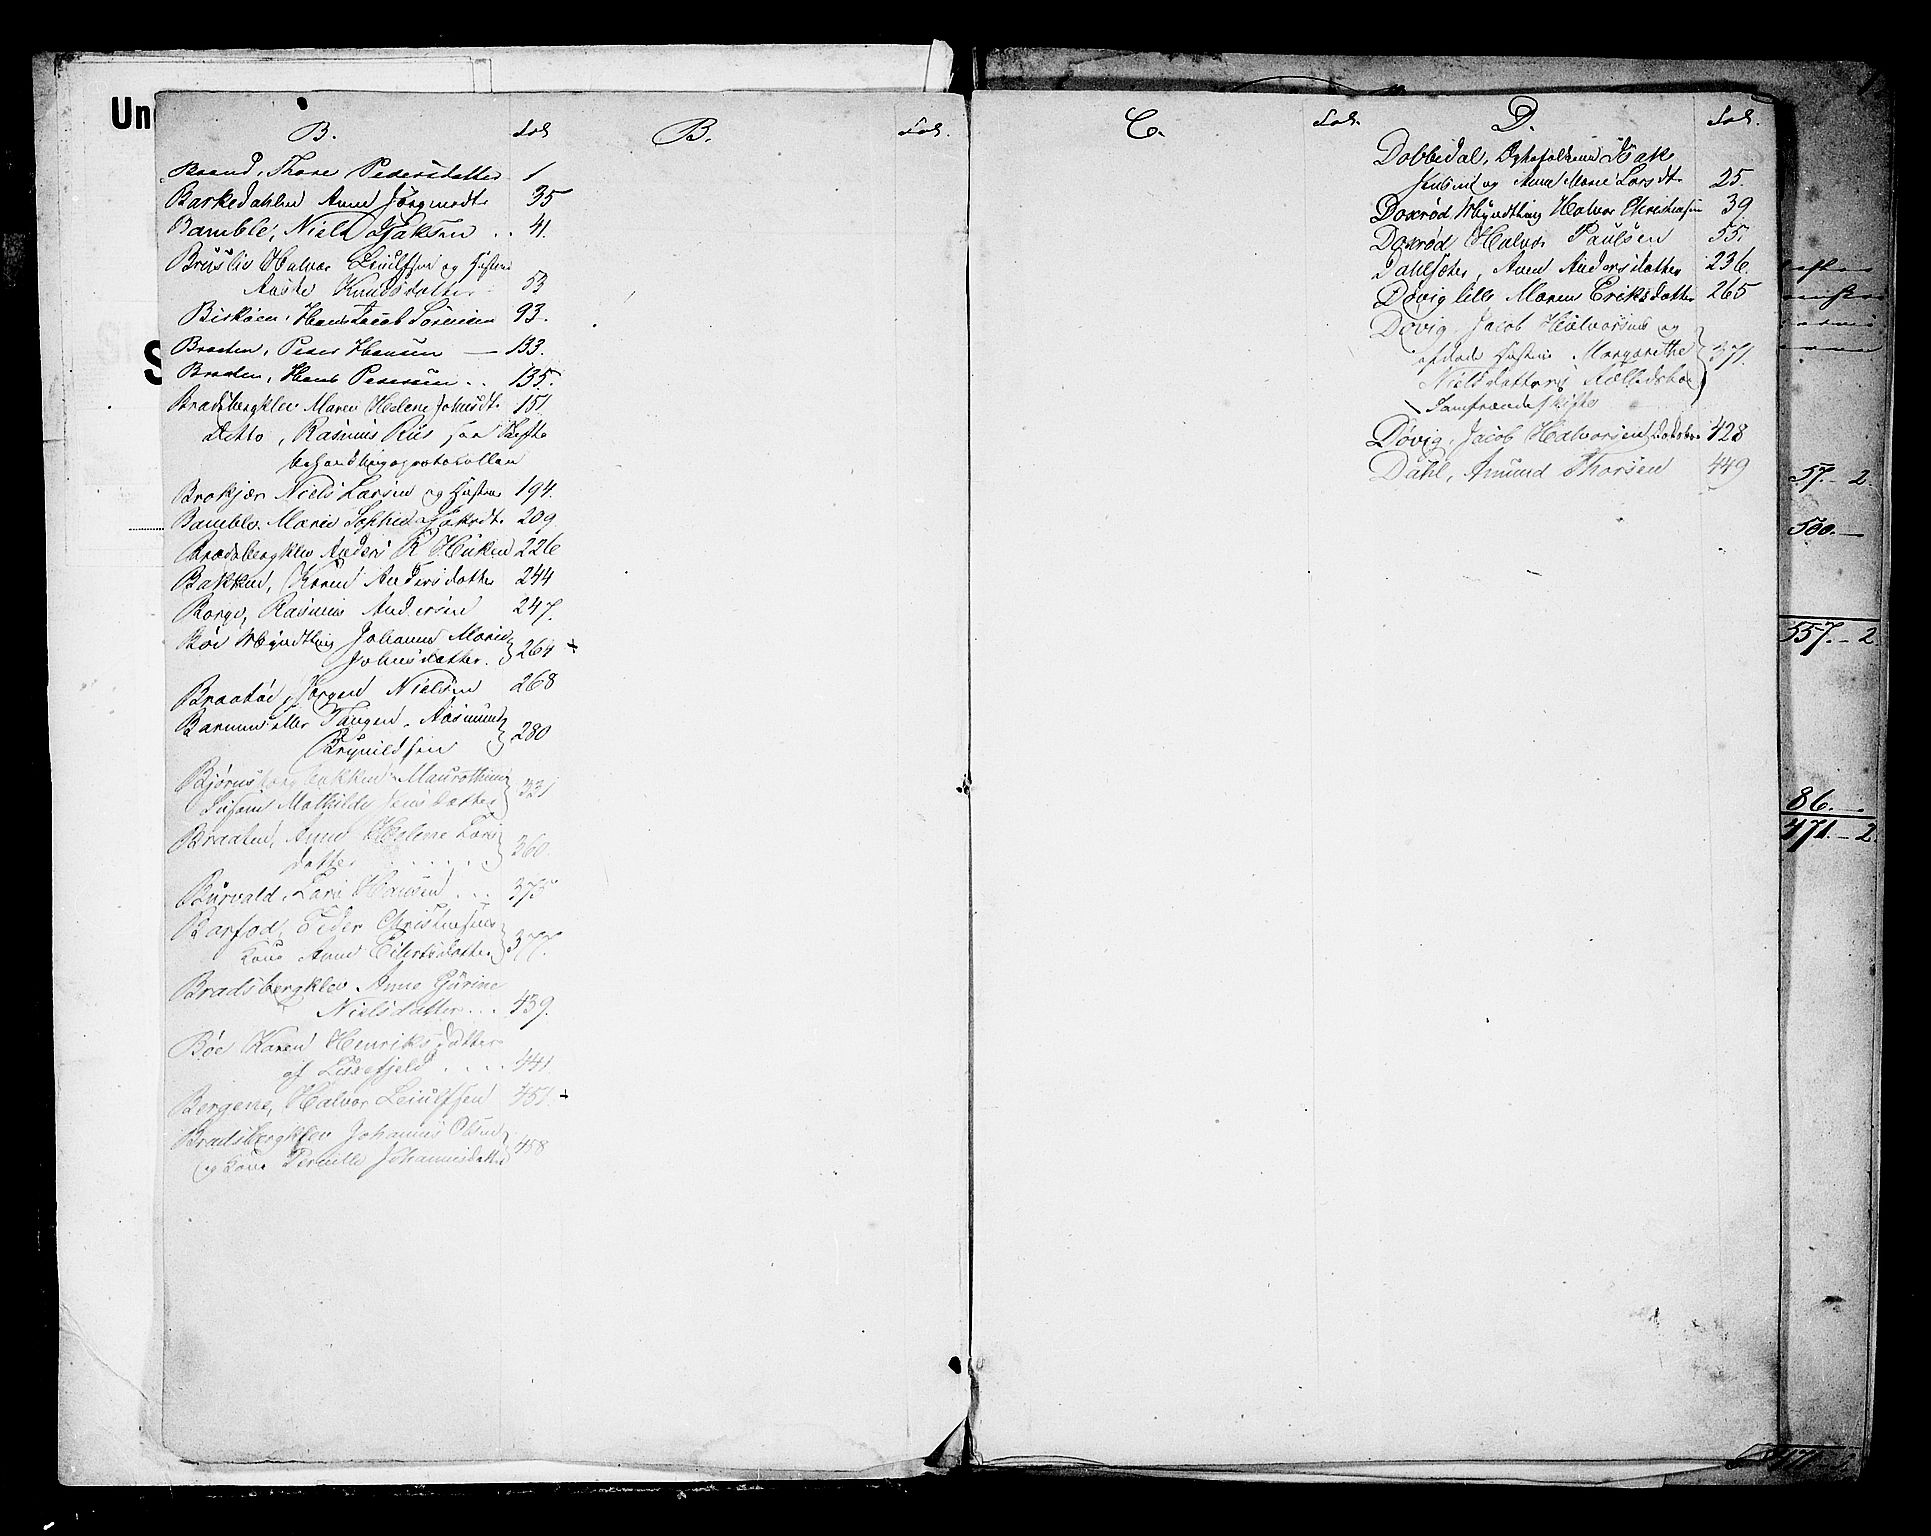 Un
S
B. Fol
Brand, Thore Pedersdatter 1
Barkedahlen Anne Jørgensdt. 35
Bamble, Niels Isaksen .. 41.
Halvor Leiulfsen og Hustru
Aaste Knudsdatter 53
Biskoen, Hans Jacob Sørensen 93.
Braaten, Peder Hansen — 133.
Braaten, Hans Pedersen .. 135.
Bradsbergklev Maren Helene Johnsdt. 151.
Ditto, Rasmus Riis see Skifte
behandlingsprotocollen
Brokjær Niels Larsen og Hustru 194.
Bamble, Marie Sophie Isaksdt. 209
Bradsbergklev Anders R Huken 226
Bakken, Karen Andersdatter 244
Borge, Rasmus Andersen 247.
Böe Myndtling Johanne Marie
Johnsdatter. 264
Braatöe, Jørgen Nielsen 268
Barmen eller Tangen, Aasmund
Brynildsen 280
Bjørnsborgbakken
Susanne Mathilde Jensdatter 321
Braaten, Anne Helene Lars
datter . . . . . 360.
Burvald, Lars Hansen . . . 375
Barfod, Peder Christensens
Kone Anne Eilertsdatter 377.
Bradsbergklev Anne Gurine
Nielsdatter . . . 439.
Böe Karen Henriksdatter
af Luxefjeld . . . . 441.
Bergene, Halvor Leiulfsen 451.
Bradsbergklev Johannes Olsen
og Kone Pernille Johannesdatter 458
B. Fol.
C. Fol.
D. Fol.
Dobbedal, Ægtefolkene Isak
Knudsen og Anne Marie Larsdt. 25.
Doxrød Myndtling Halvor Christensen 39.
Doxrød Halvor Paulsen 55.
Dahlsæter, Anne Andersdatter 236.
Døvig lille Maren Eriksdatter 265
Døvig, Jacob Halvorsens og
afdøde Hustru Margarethe
Nielsdatters Fælledsboe 371.
Samfrændeskifte
Døvig, Jacob Halvorsen 428
Dahl, Amund Thorsen 449
57.-2.
500.—
557.-2.
86.—.
471.-2.